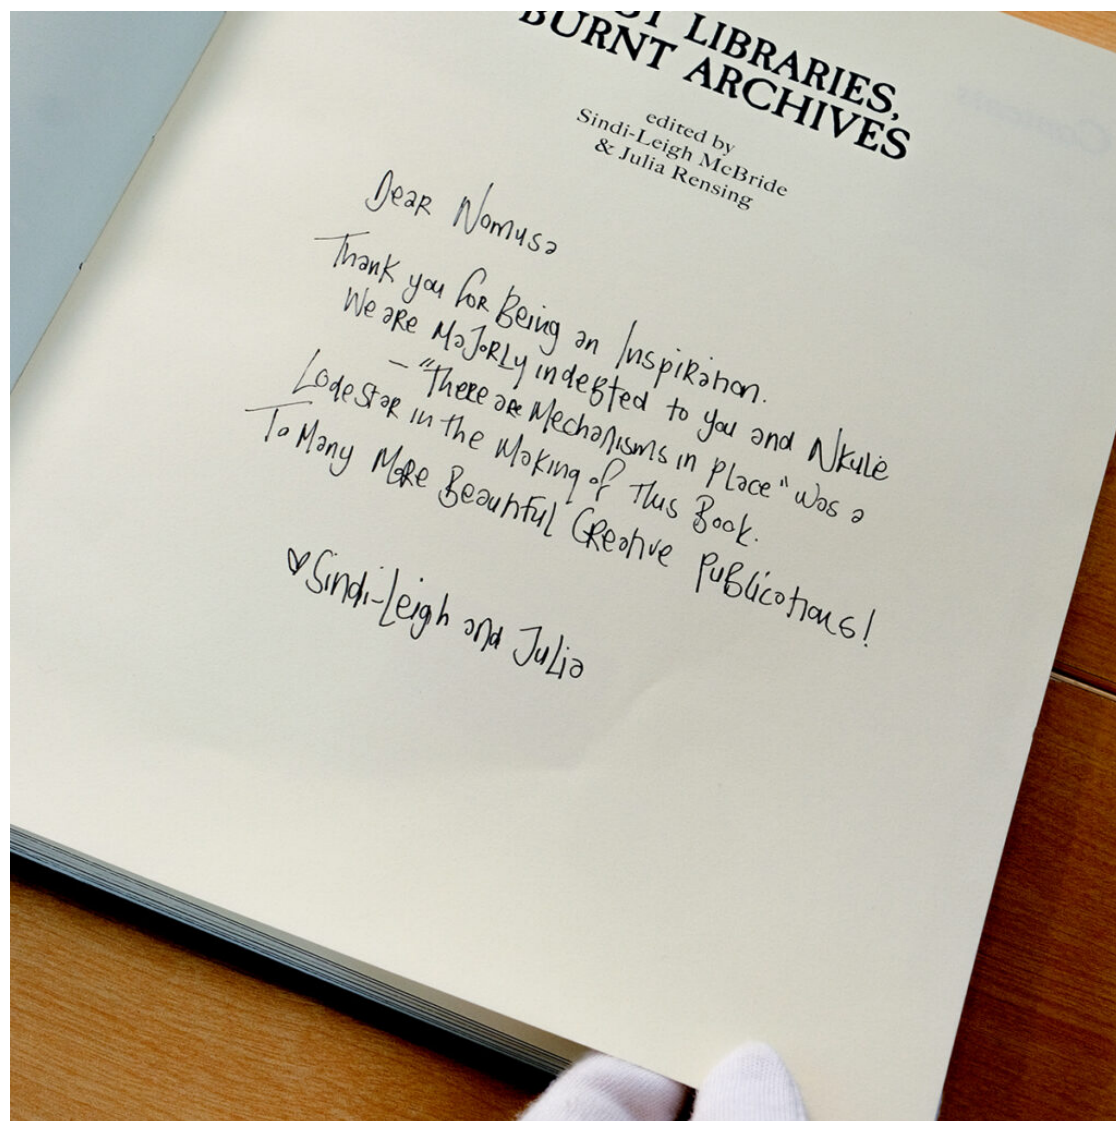 LIBRARIES,
BURNT ARCHIVES
edited by
Sindi-Leigh McBride
& Julia Rensing
Dear Nomusa
Thank you for Being an Inspiration.
We are Majorly indebted to you and Nkule
– "There are Mechanisms in place" was a
Lodestar in the Making of This Book.
To Many More Beautiful Creative Publications!
♥Sindi-Leigh and Julia